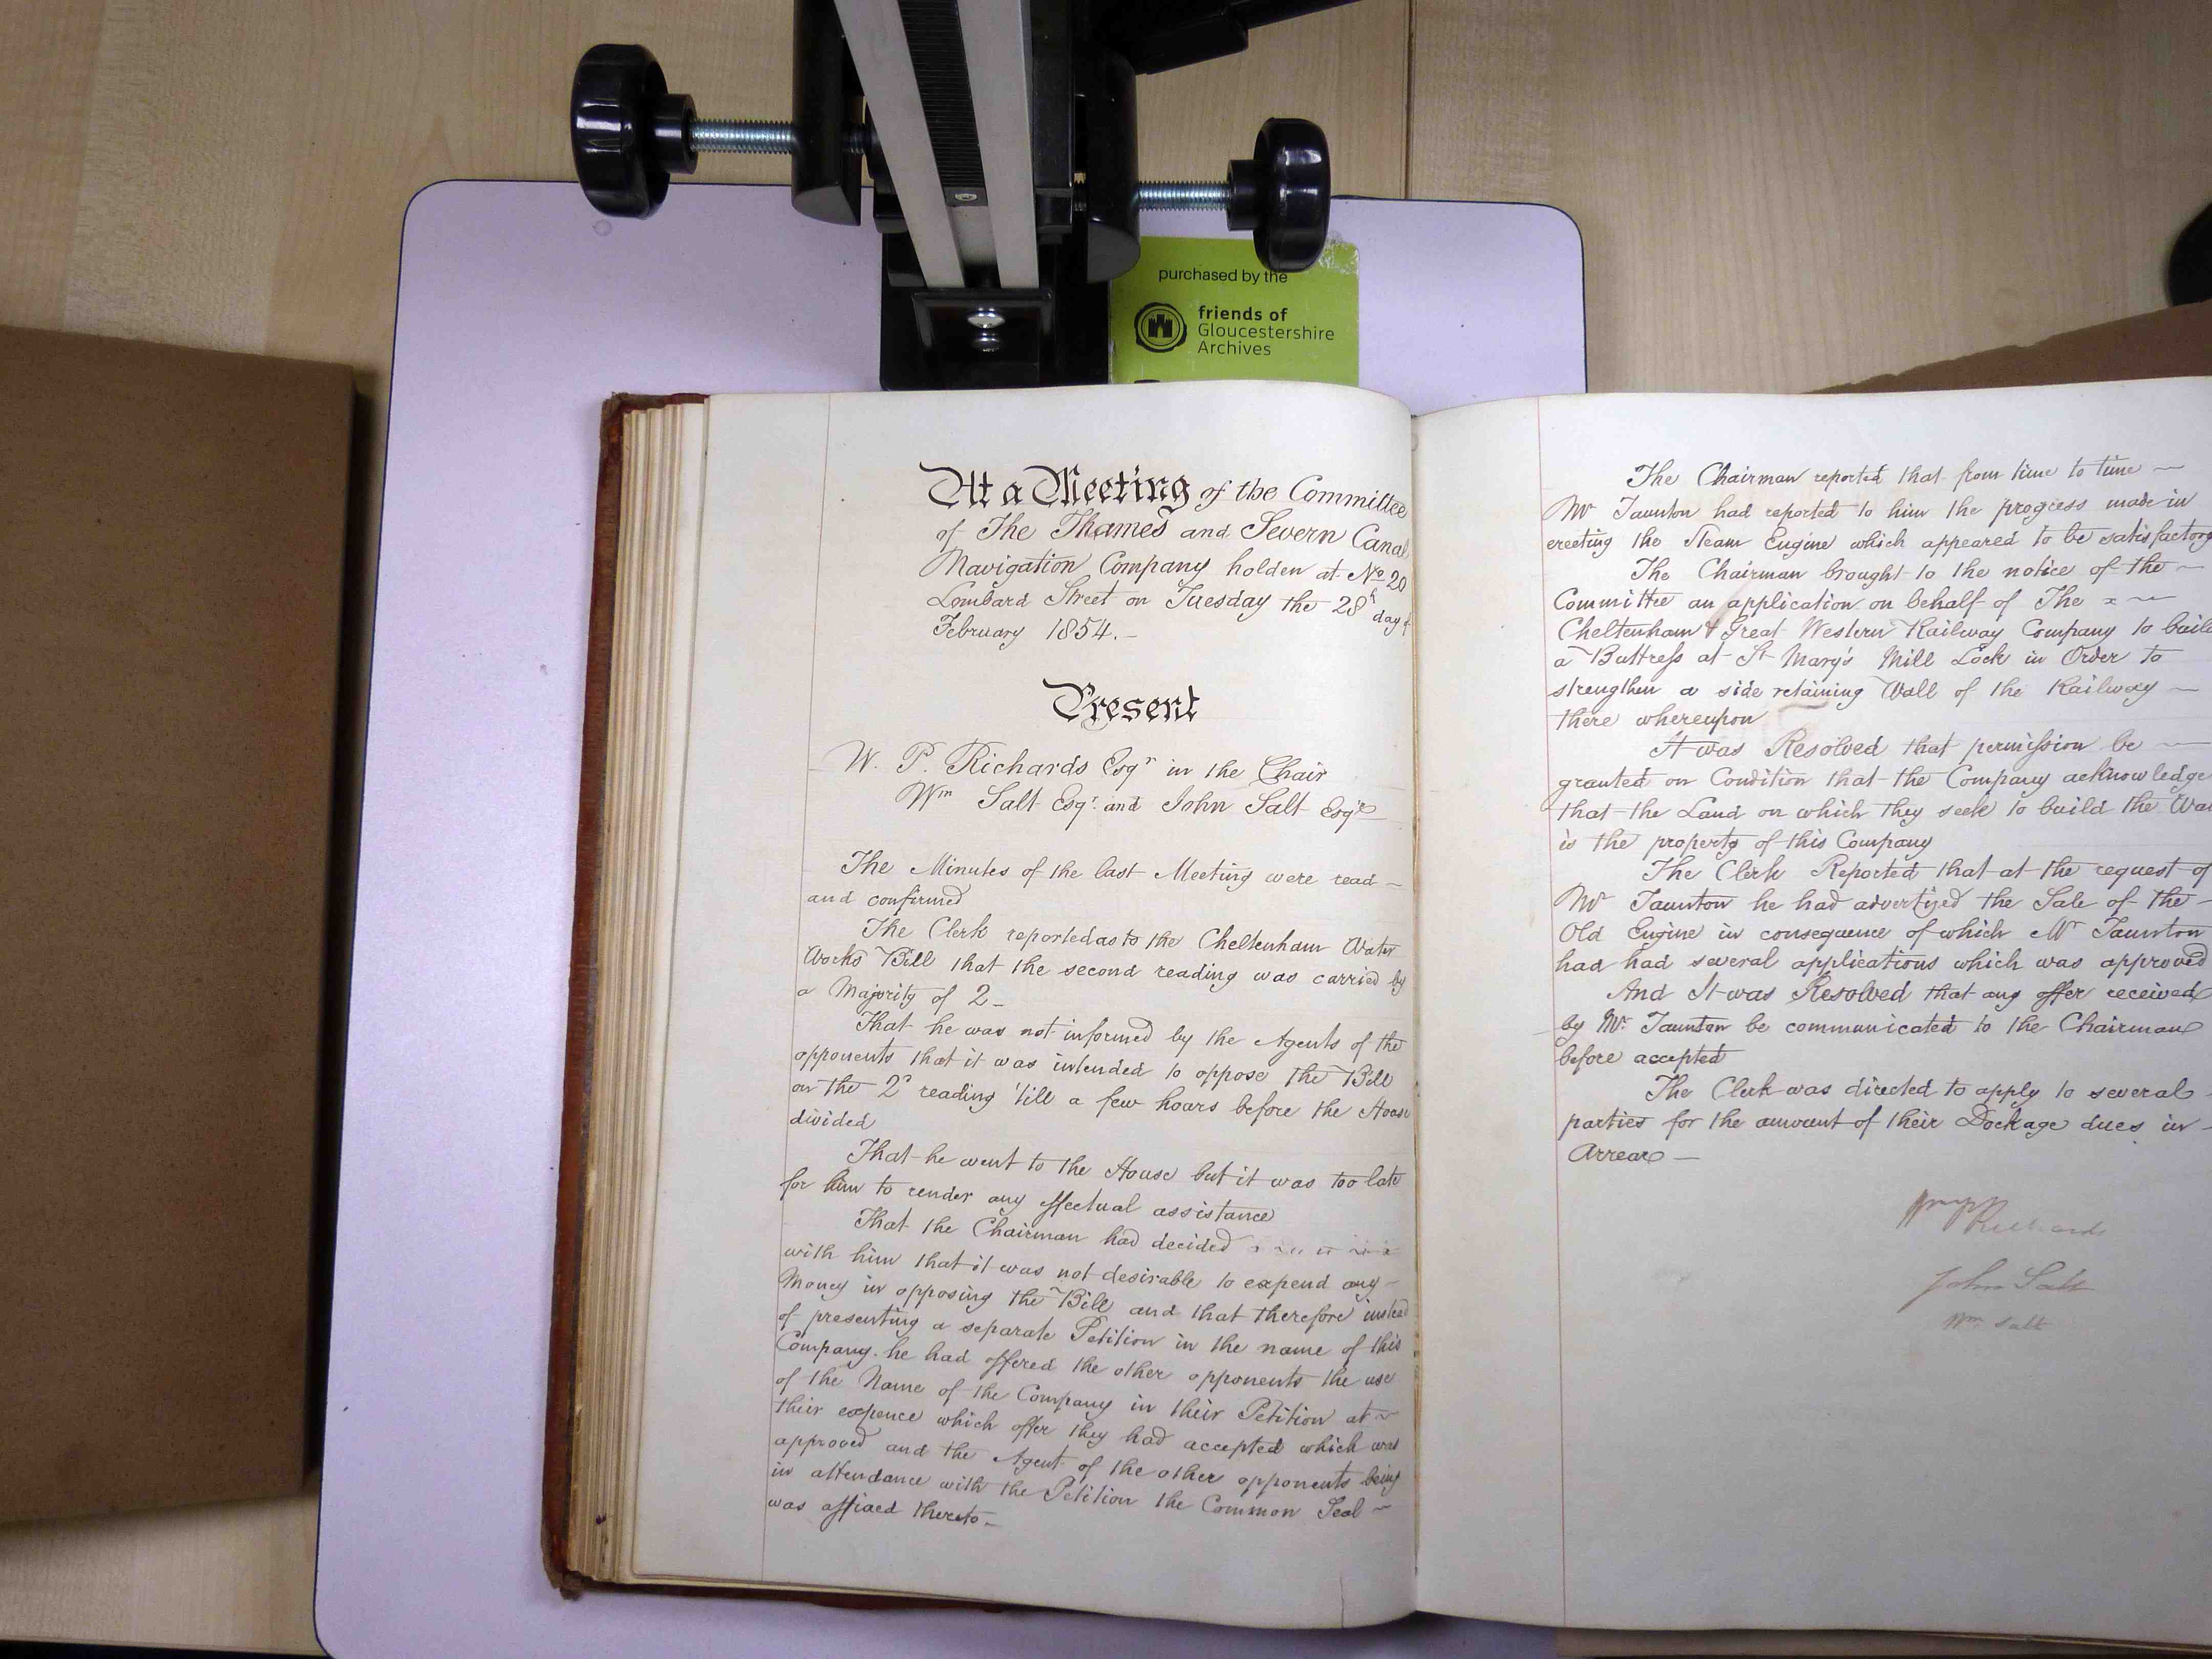 purchased by the
friends of
Gloucestershire
Archives
At a Meeting of the Committee
of The Thames and Severn Canal
Navigation Company holden at No 20
Lombard Street on Tuesday the 28th day of
February 1854.-
Present
W. P. Richards Esqr in the Chair
Wm Salt Esqr. and John Salt Esqre
The Minutes of the last Meeting were read -
and confirmed
The Clerk reported as to the Cheltenham Water
Works Bill that the second reading was carried by
a Majority of 2 -
That he was not informed by the Agents of the
opponents that it was intended to oppose the Bill
on the 2d reading 'till a few hours before the House
divided
That he went to the House but it was too late
for him to render any effectual assistance
That the Chairman had decided
with him that it was not desirable to expend any -
Money in opposing the Bill and that therefore instead
of presenting a separate Petition in the name of this
Company. he had offered the other opponents the use
of the Name of the Company in their Petition at ~
their expence which offer they had accepted which was
approved and the Agent of the other opponents being
in attendance with the Petition the Common Seal ~
was affixed thereto -
The Chairman reported that from time to time ~
Mr Taunton had reported to him the progress made in
erecting the Steam Engine which appeared to be satisfactory
The Chairman brought to the notice of the ~
Committee an application on behalf of The
Cheltenham & Great Western Railway Company to build
a Buttress at St Mary's Mill Lock in Order to
strengthen a side retaining Wall of the Railway ~
there whereupon
It was Resolved that permission be ~
granted on Condition that the Company acknowledge
that the Land on which they seek to build the Wall
is the property of this Company
The Clerk Reported that at the request of
Mr Taunton he had advertized the Sale of the -
Old Engine in consequence of which Mr Taunton
had had several applications which was approved
And It was Resolved that any offer received
by Mr. Taunton be communicated to the Chairman
before accepted
The Clerk was directed to apply to several -
parties for the amount of their Dockage dues in -
Arrear -
Richards
John Salt
Wm Salt